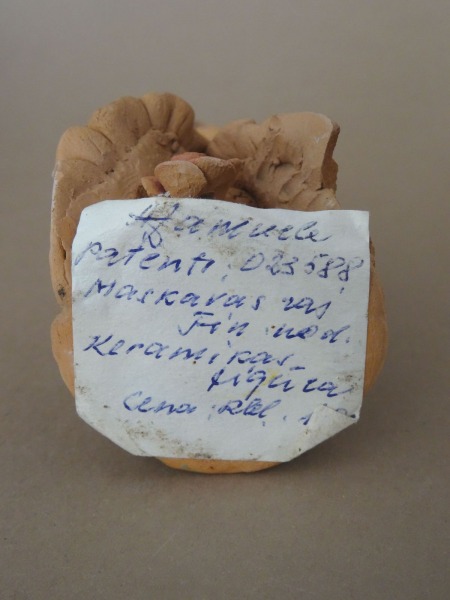 Patents 023588
Maskavas raj
Fin nod.
Keramikas
figūra
Cena Rbl.